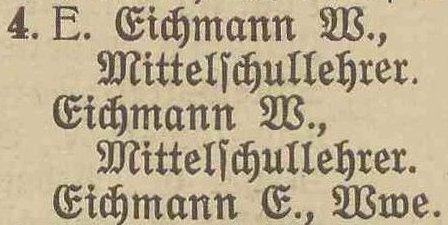 4. E. Eichmann W.,
Mittelſchullehrer.
Eichmann W.,
Mittelſchullehrer.
Eichmann E., Wwe.